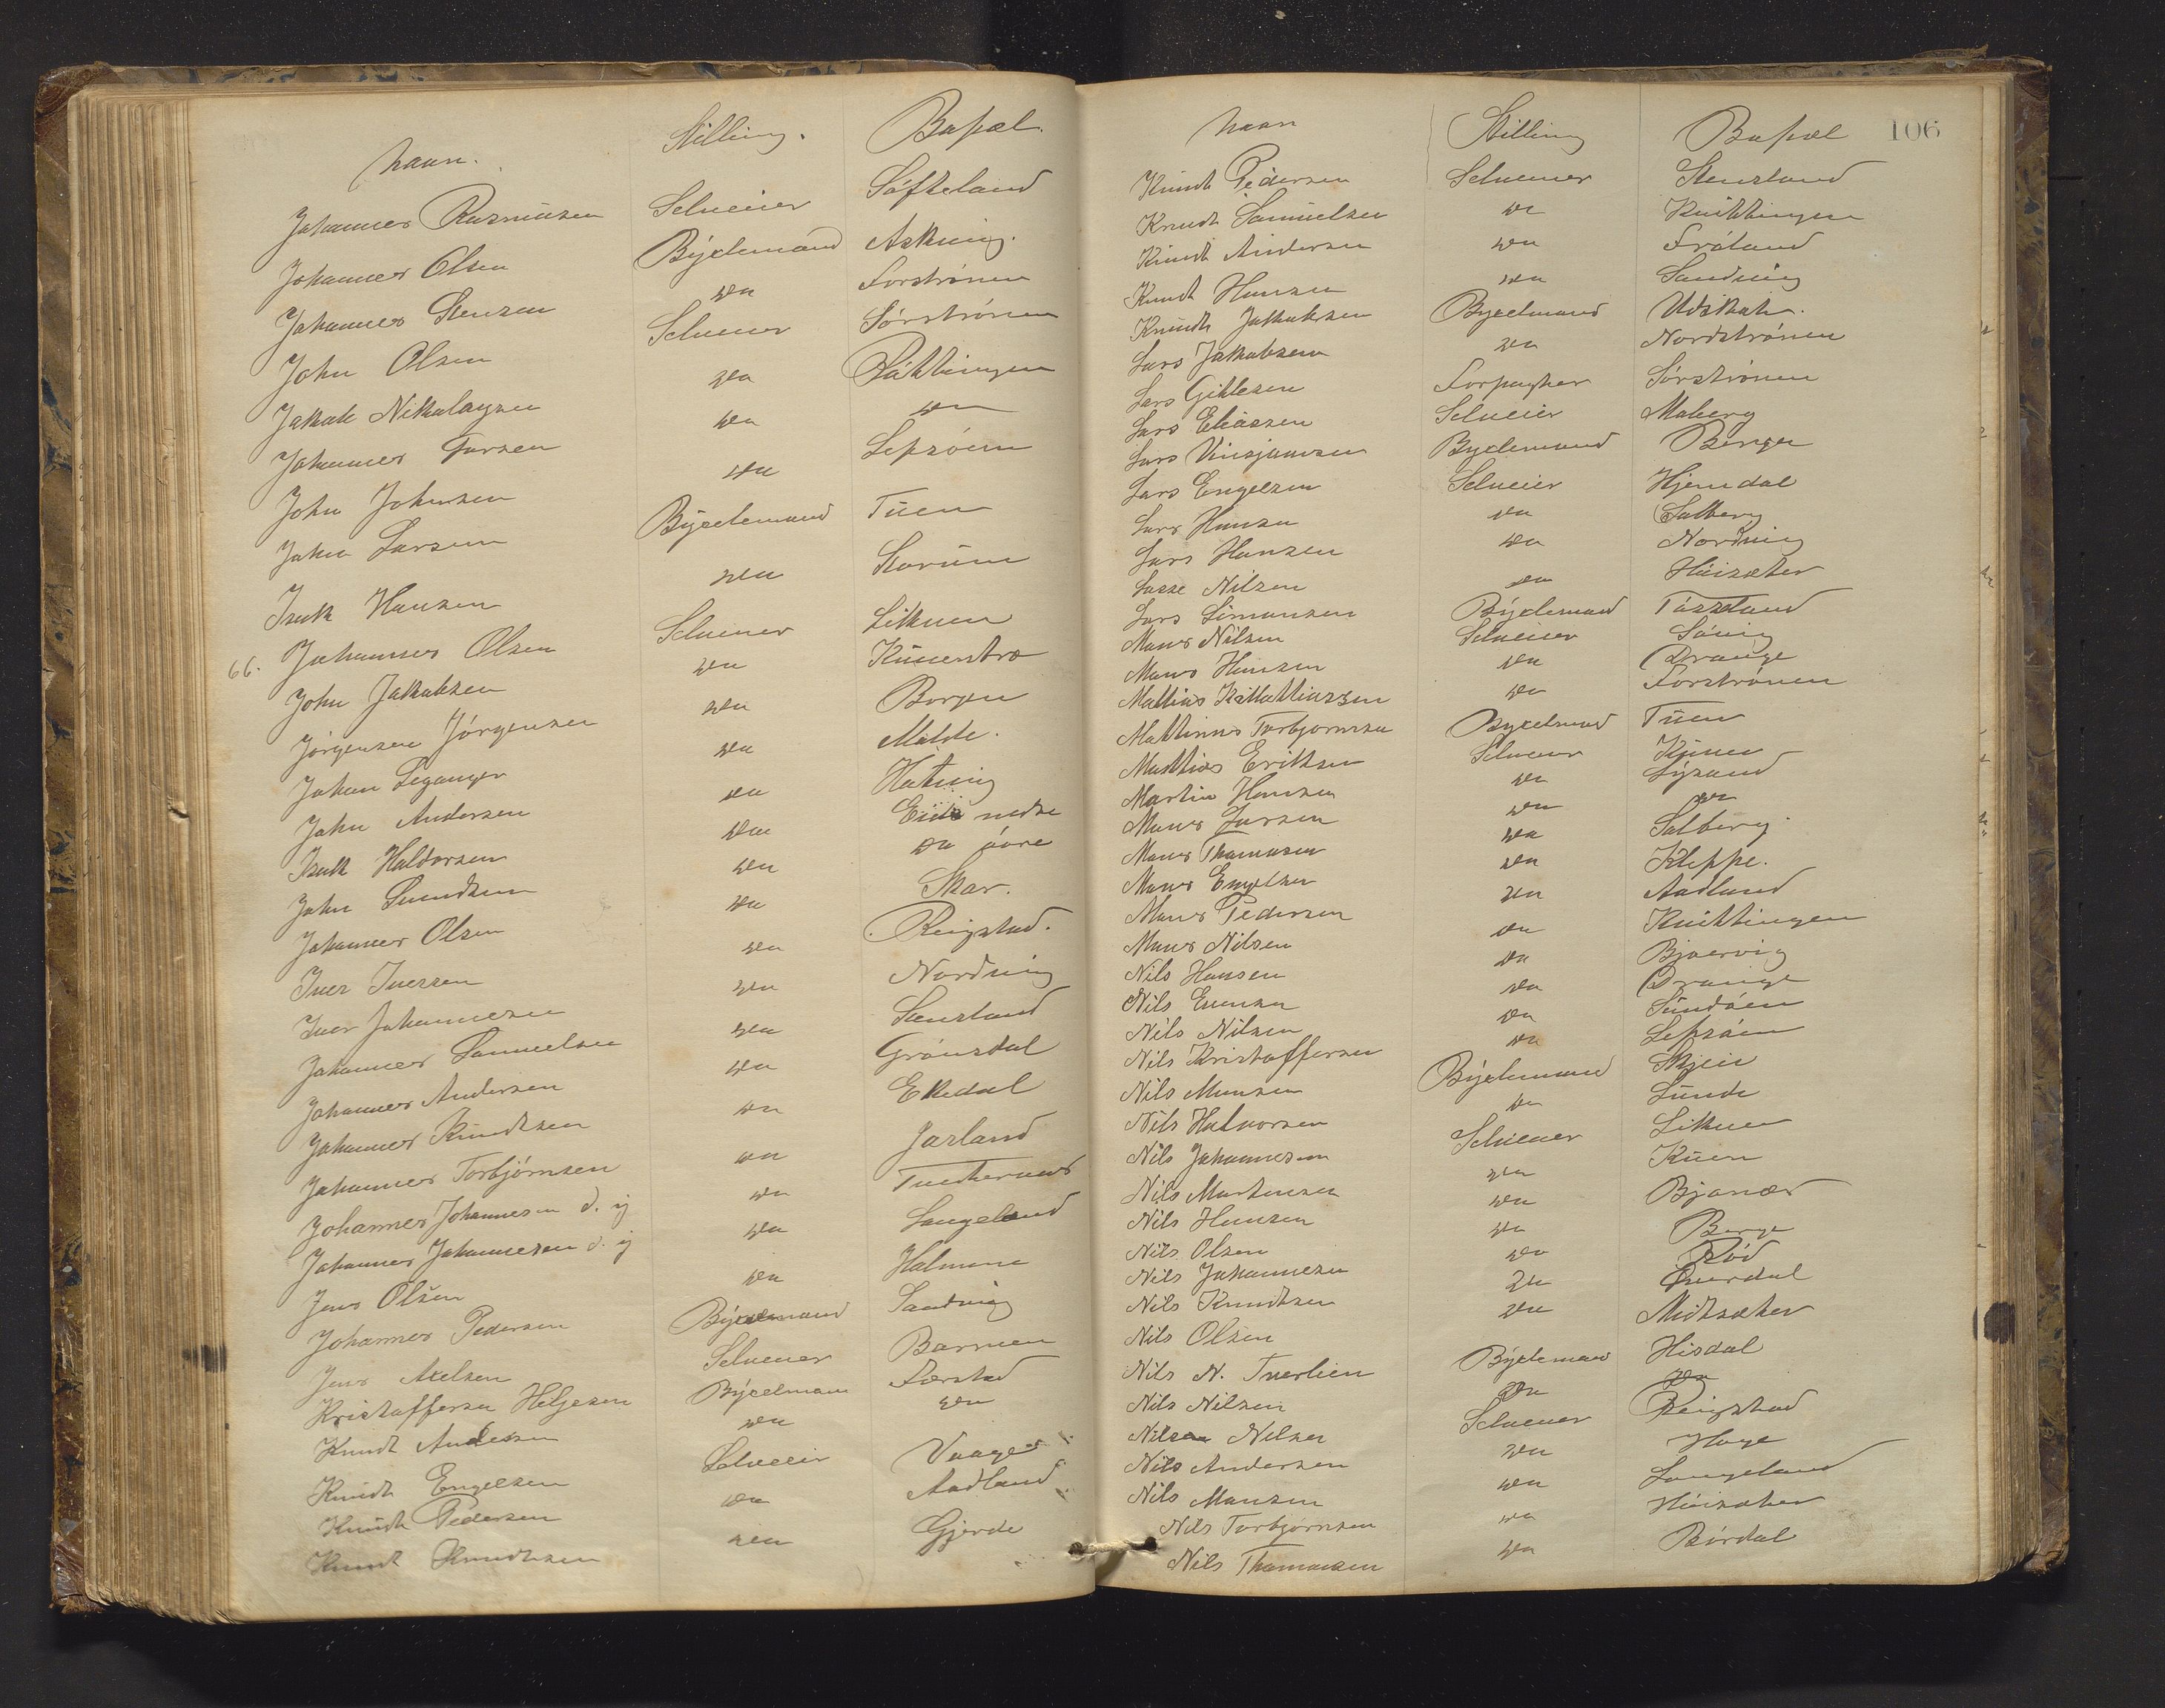 Navn. Stilling. Bopæl.
Johannes Rasmusen Selveier Søfteland
Johannes Olsen Bygelmand Askvig.
Johannes Stensen do Forstrønen
John Olsen Selveier Sørstrønen
Jakob Nikolaysen do Røttingen
Johannes Larsen do do
John Johnsen do Lepsøen
John Larsen Bygelemand Tuen
Isak Hansen do Storum
66. Johannes Olsen Selveier Liknen
John Jakobsen do
Jørgensen Jørgensen do Borgen
Johan Leganger do Milde.
John Andersen do Hatvig
Isak Haldorsen do Eide nedre
John Knudsen do do øvre
Johannes Olsen do Skar.
Iver Iversen do Reigstad.
Iver Johannesen do Nordvig
Johannes Samuelsen do Stensland
Johannes Andersen do Grønsdal
Johannes Knudtsen do Ekedal
Johannes Torbjørnsen do Jarland
Johannes Johannesen d. y do
Johannes Johannesen d. y do Langeland
Jens Olsen do Halmene
Johannes Pedersen Bygelmand Sandvig
Jens Axelsen Selveier Barmen
Kristoffersen Helgesen Bygelman Færstad
Knudt Andersen do do
Knudt Engelsen Selveier Vaage
Knudt Pedersen do Aadland
Knudt Knudtsen do Gjerde
106
Navn Stilling Bopæl
Knudt Pedersen Selveier Stensland
Knudt Samuelsen do Kuittingen
Knudt Andersen do Frøland
Knudt Hansen do Sandvig
Knudt Jakobsen Bygelmand Udskot.
Lars Jakobsen do Nordstrønen
Lars Giklesen Forpagter Sørstrønen
Lars Eliassen Selveier Moberg
Lars Vinsjansen Bygelemand Berge
Lars Engelsen Selveier Hjemdal
Lars Hansen do Solberg
Lars Hansen do Nordvig
Lasse Nilsen do Húisæter
Lars Simonsen Bygelemand Tøsseland
Mons Nilsen Selveier Søvig
Mons Hansen do Drange
Mattias Mattiassen do Forstrønen
Mattinus Torbjørnsen Bygelmand Tuen
Matthias Eriksen Selveier Kuven
Martin Hansen do Lysand
Mons Larsen do do
Mons Thomasen do Solberg
Mons Engelsen do Kleppe.
Mons Pedersen do Aadland
Mons Nilsen do Kuittingen
Nils Hansen do Bjørvig
Nils Evensen do Drange
Nils Nilsen do Sundøen
Nils Kristoffersen do Lepsøen
Nils Monsen Bygelemand Skjeie
Nils Halvorsen do Lunde
Nils Johannesen Selveier Liknen
Nils Martensen do Kuen
Nils Hansen do Bjånæs
Nils Olsen do Berge
Nils Johannesen do Rød
Nils Knudtsen do Øverdal
Nils Olsen do Midtsæter
Nils N. Tverlien Bygeleman Hisdal
Nils Nilsen do do
Nilsen Nilsen Selveier Reigstad
Nils Andersen do Hage
Nils Monsen do Langeland
Nils Torbjørnsen do Húisæter
Nils Thomassen do Børdal